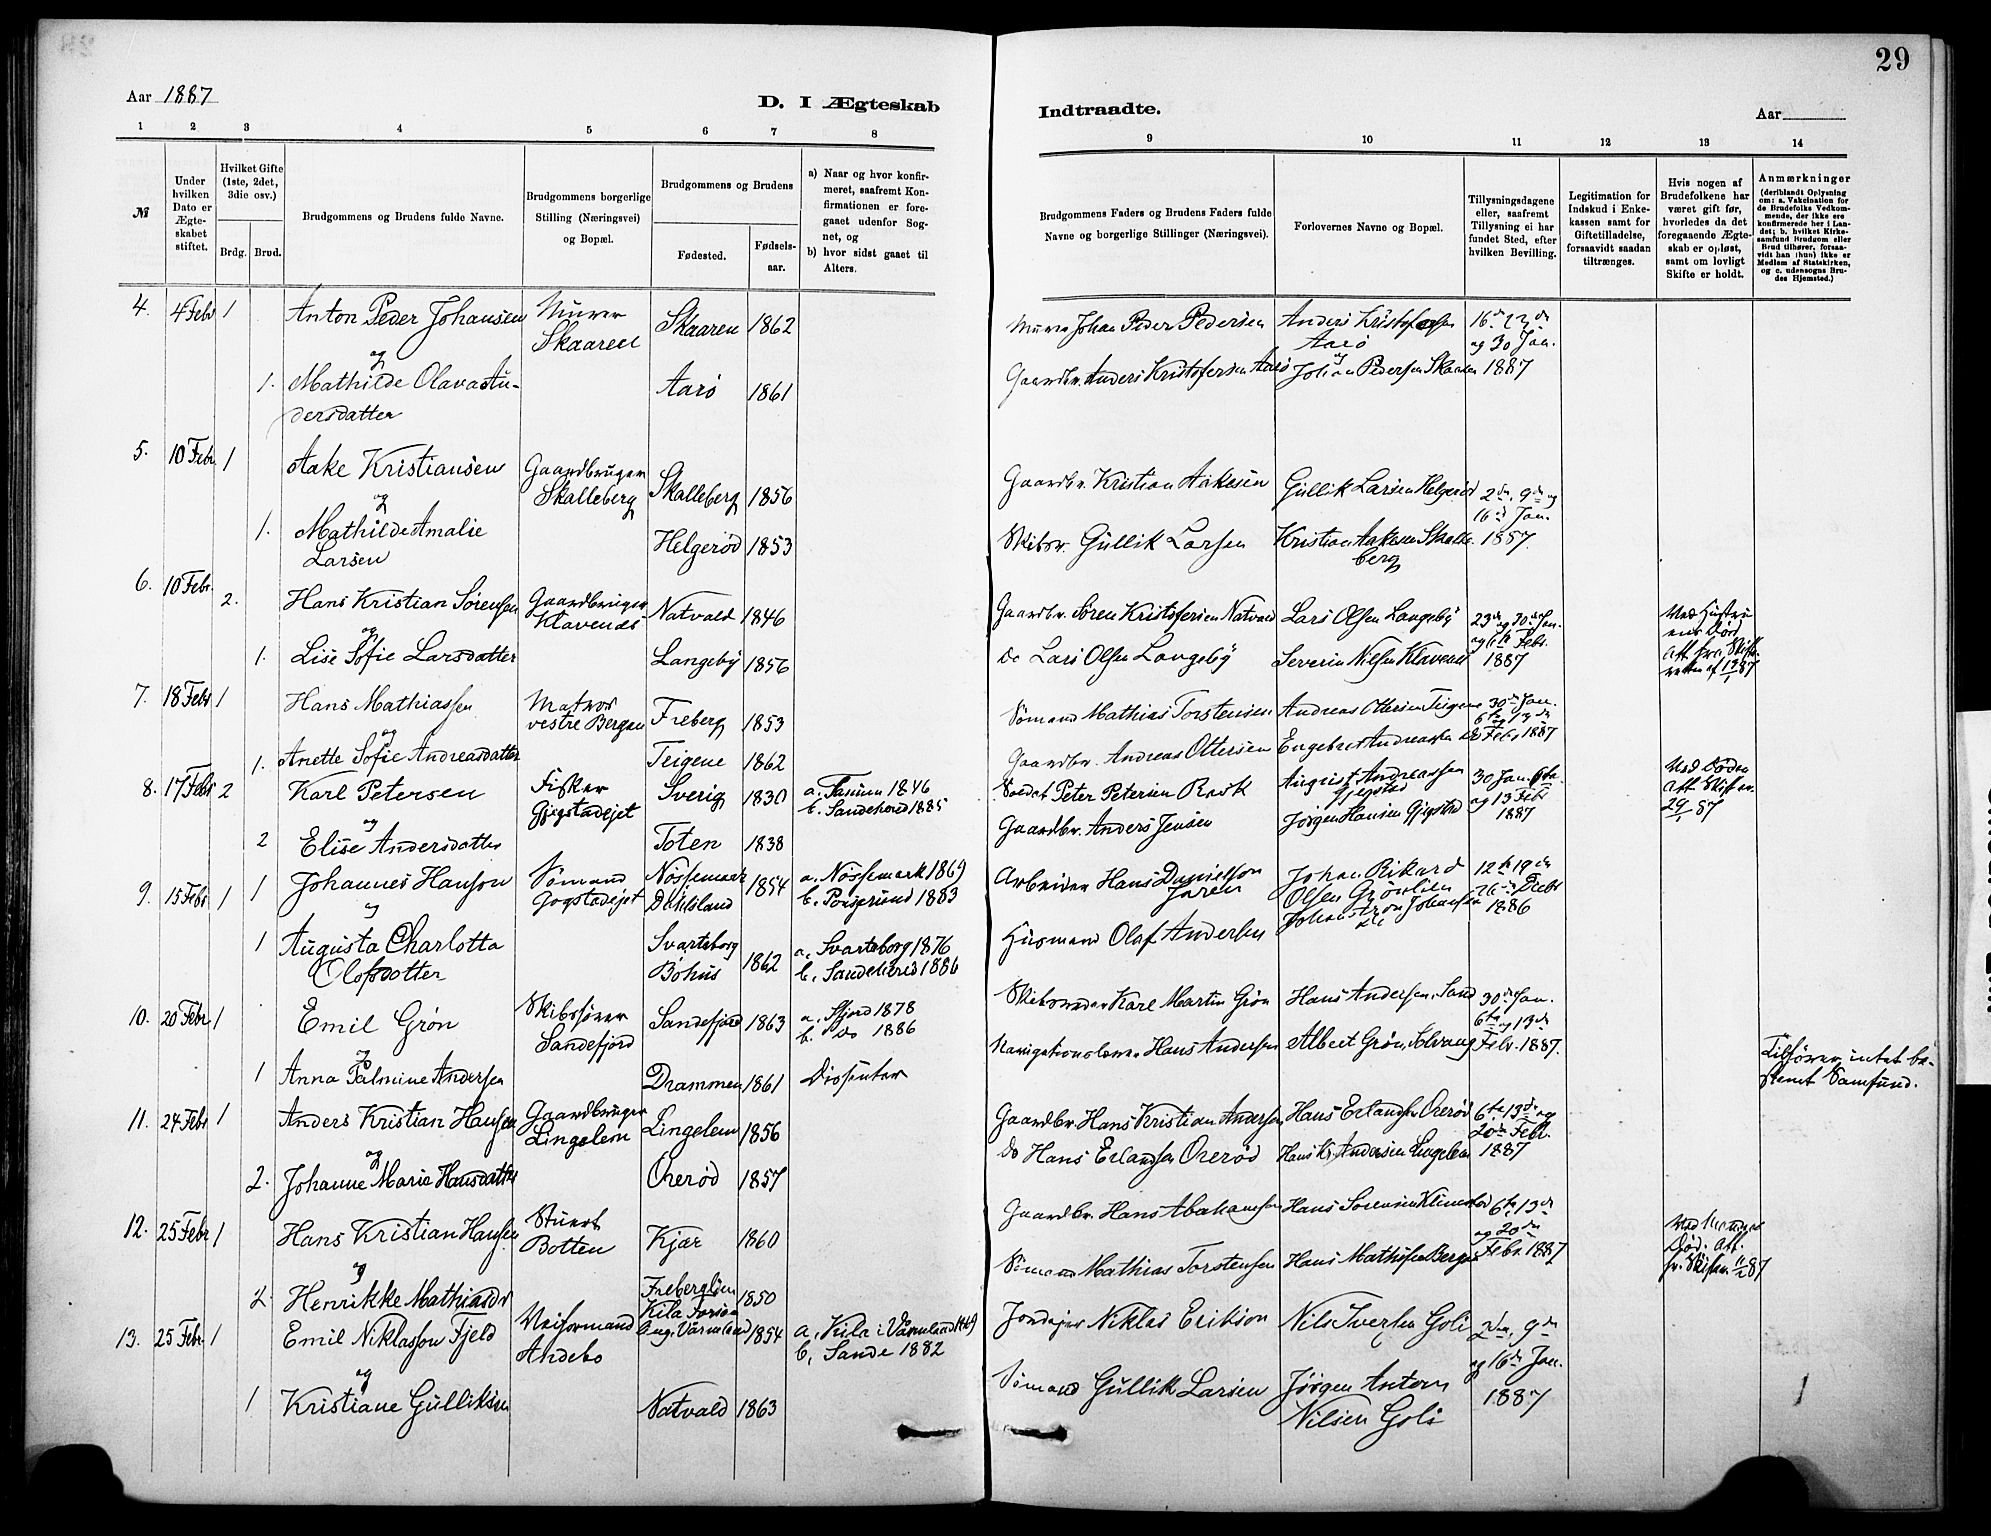 29
Aar 1887
D. I Ægteskab
Indtraadte.
Aar
1 2 3 4 5 6 7 8 9 10 11 12 13 14
№
Under hvilken Dato er Ægteskabet stiftet.
Hvilket Gifte (1ste, 2det, 3die osv.)
Brdg. Brud.
Brudgommens og Brudens fulde Navne.
Brudgommens borgerlige Stilling (Næringsvei) og Bopæl.
Brudgommens og Brudens
Fødested.
Fødsels-aar.
a) Naar og hvor konfirmeret, saafremt Konfirmationen er foregaaet udenfor Sognet, og
b) hvor sidst gaaet til Alters.
Brudgommens Faders og Brudens Faders fulde Navne og borgerlige Stillinger (Næringsvei).
Forlovernes Navne og Bopæl.
Tillysningsdagene eller, saafremt Tillysning ei har fundet Sted, efter hvilken Bevilling.
Legitimation for Indskud i Enkekassen samt for Giftetilladelse, forsaavidt saadan tiltrænges.
Hvis nogen af Brudefolkene har været gift før, hvorledes da det foregaaende Ægteskab er opløst, samt om lovligt Skifte er holdt.
Anmærkninger
(deriblandt Oplysning om: a. Vakcination for de Brudefolks Vedkommende, der ikke ere konfirmerede her i Landet; b. hvilket Kirkesamfund Brudgom eller Brud tilhører, forsaavidt han (hun) ikke er Medlem af Statskirken, og c. udensogns Brudes Hjemsted.)
4. 4 Febr 1 Anton Peder Johansen Murer Skaaren Skaaren 1862 Murer Johan Peder Pedersen Anders Kristofersen Aarø 16de 23de og 30 Jan. 1887
og
1. Mathilde Olava Andersdatter Aarø 1861 Gaardbr. Anders Kristofersen Aarø og Johan Pedersen Skaaren
5. 10 Febr. 1 Aake Kristiansen Gaardbruger Skalleberg Skalleberg 1856 Gaardbr. Kristian Aakesen Gullik Larsen Helgerød 2den, 9de og 16de Jan. 1887.
og
1. Mathilde Amalie Larsen Helgerød 1853 Skibsr. Gullik Larsen Kristian Aakesen Skalleberg
6. 10 Febr. 2. Hans Kristian Sørensen Gaardbruger Klavenes Natvald 1846 Gaardbr. Søren Kristofersen Natvald Lars Olsen Langeby 23de og 30de Jan. og 6te Febr. 1887
og
1. Lise Sofie Larsdatter Langeby 1856 Do Lars Olsen Langeby Severin Nilsen Klavenes
7. 18 Febr 1 Hans Mathiassen Matros vestre Bergan Freberg 1853 Sømand Mathias Torstensen Andreas Ottersen Teigene 30de Jan. 6te og 13de Febr 1887
og
1. Anette Sofie Andreasdatter Teigene 1862 Gaardbr. Andreas Ottersen Engebret Andreassen
8. 17 Febr 2 Karl Petersen Fisker Gjogstadejet Sverig 1830 b. Sandeherred 1885 Soldat Peter Petersen Rask August Andreassen 30 Jan. 6te og 13 Febr 1887 Ved Døden
og
2 Elise Andersdatter Toten 1838 Gaardbr. Anders Jensen Jørgen Hansen
9. 15 Febr 1 Johannes Hanson Sømand Gogstadejet Nössemark Dahlsland 1854 a. Nössemark 1869 Arbeider Hans Danielson Johan Rikard Olsen 12te 19de 26de Decbr 1886
og
1 Augusta Charlotta Olofsdotter Svarteborg Bohus 1862 a. Svarteborg 1876 b. Sandeherred 1886 Husmand Olaf Andersen
10. 20 Febr 1 Emil Grøn Skibsfører Sandefjord Sandefjord 1863 a. Sfjord 1878 b. Do 1886 Skibsreder Karl Martin Grøn Hans Andersen, Sand 30de Jan. 6te og 13de Febr. 1887.
og
1 Anna Palmine Andersen Drammen 1861 Dissenter Navigationslærer Hans Andersen Albert Grøn, Solvang Tilhører intet bestemt Samfund.
11. 24 Febr 1 Anders Kristian Hansen Gaardbruger Lingelem Lingelem 1856 Gaardbr. Hans Kristian Andersen Hans Erlandsen Orerød 6te 13de og 20de Febr. 1887
og
2. Johanne Marie Hansdatter Orerød 1857 Do Hans Erlandsen Orerød Hans Kr. Andersen Lingelem
12. 25 Febr 1 Hans Kristian Hansen Stuert Botten Kjær 1860 Gaardbr. Hans Abrahamsen Hans Sørensen Klinestad 6te, 13de og 20de Febr. 1887
og
2. Henrikke Mathiasdr 1850 Sømand Mathias Torstensen Hans Mathisen Bergan
13. 25 Febr. 1 Emil Niklasson Fjeld Andebo Kila 1854 a, Kila i Värmland b, Sande 1882 Jordejer Niklas Erikson Nils Iversen Goli 2den, 9de og 16de Jan. 1887
og
1 Kristiane Gulliksen Natvald 1863 Sømand Gullik Larsen Jørgen Antorn Nilsen Goli